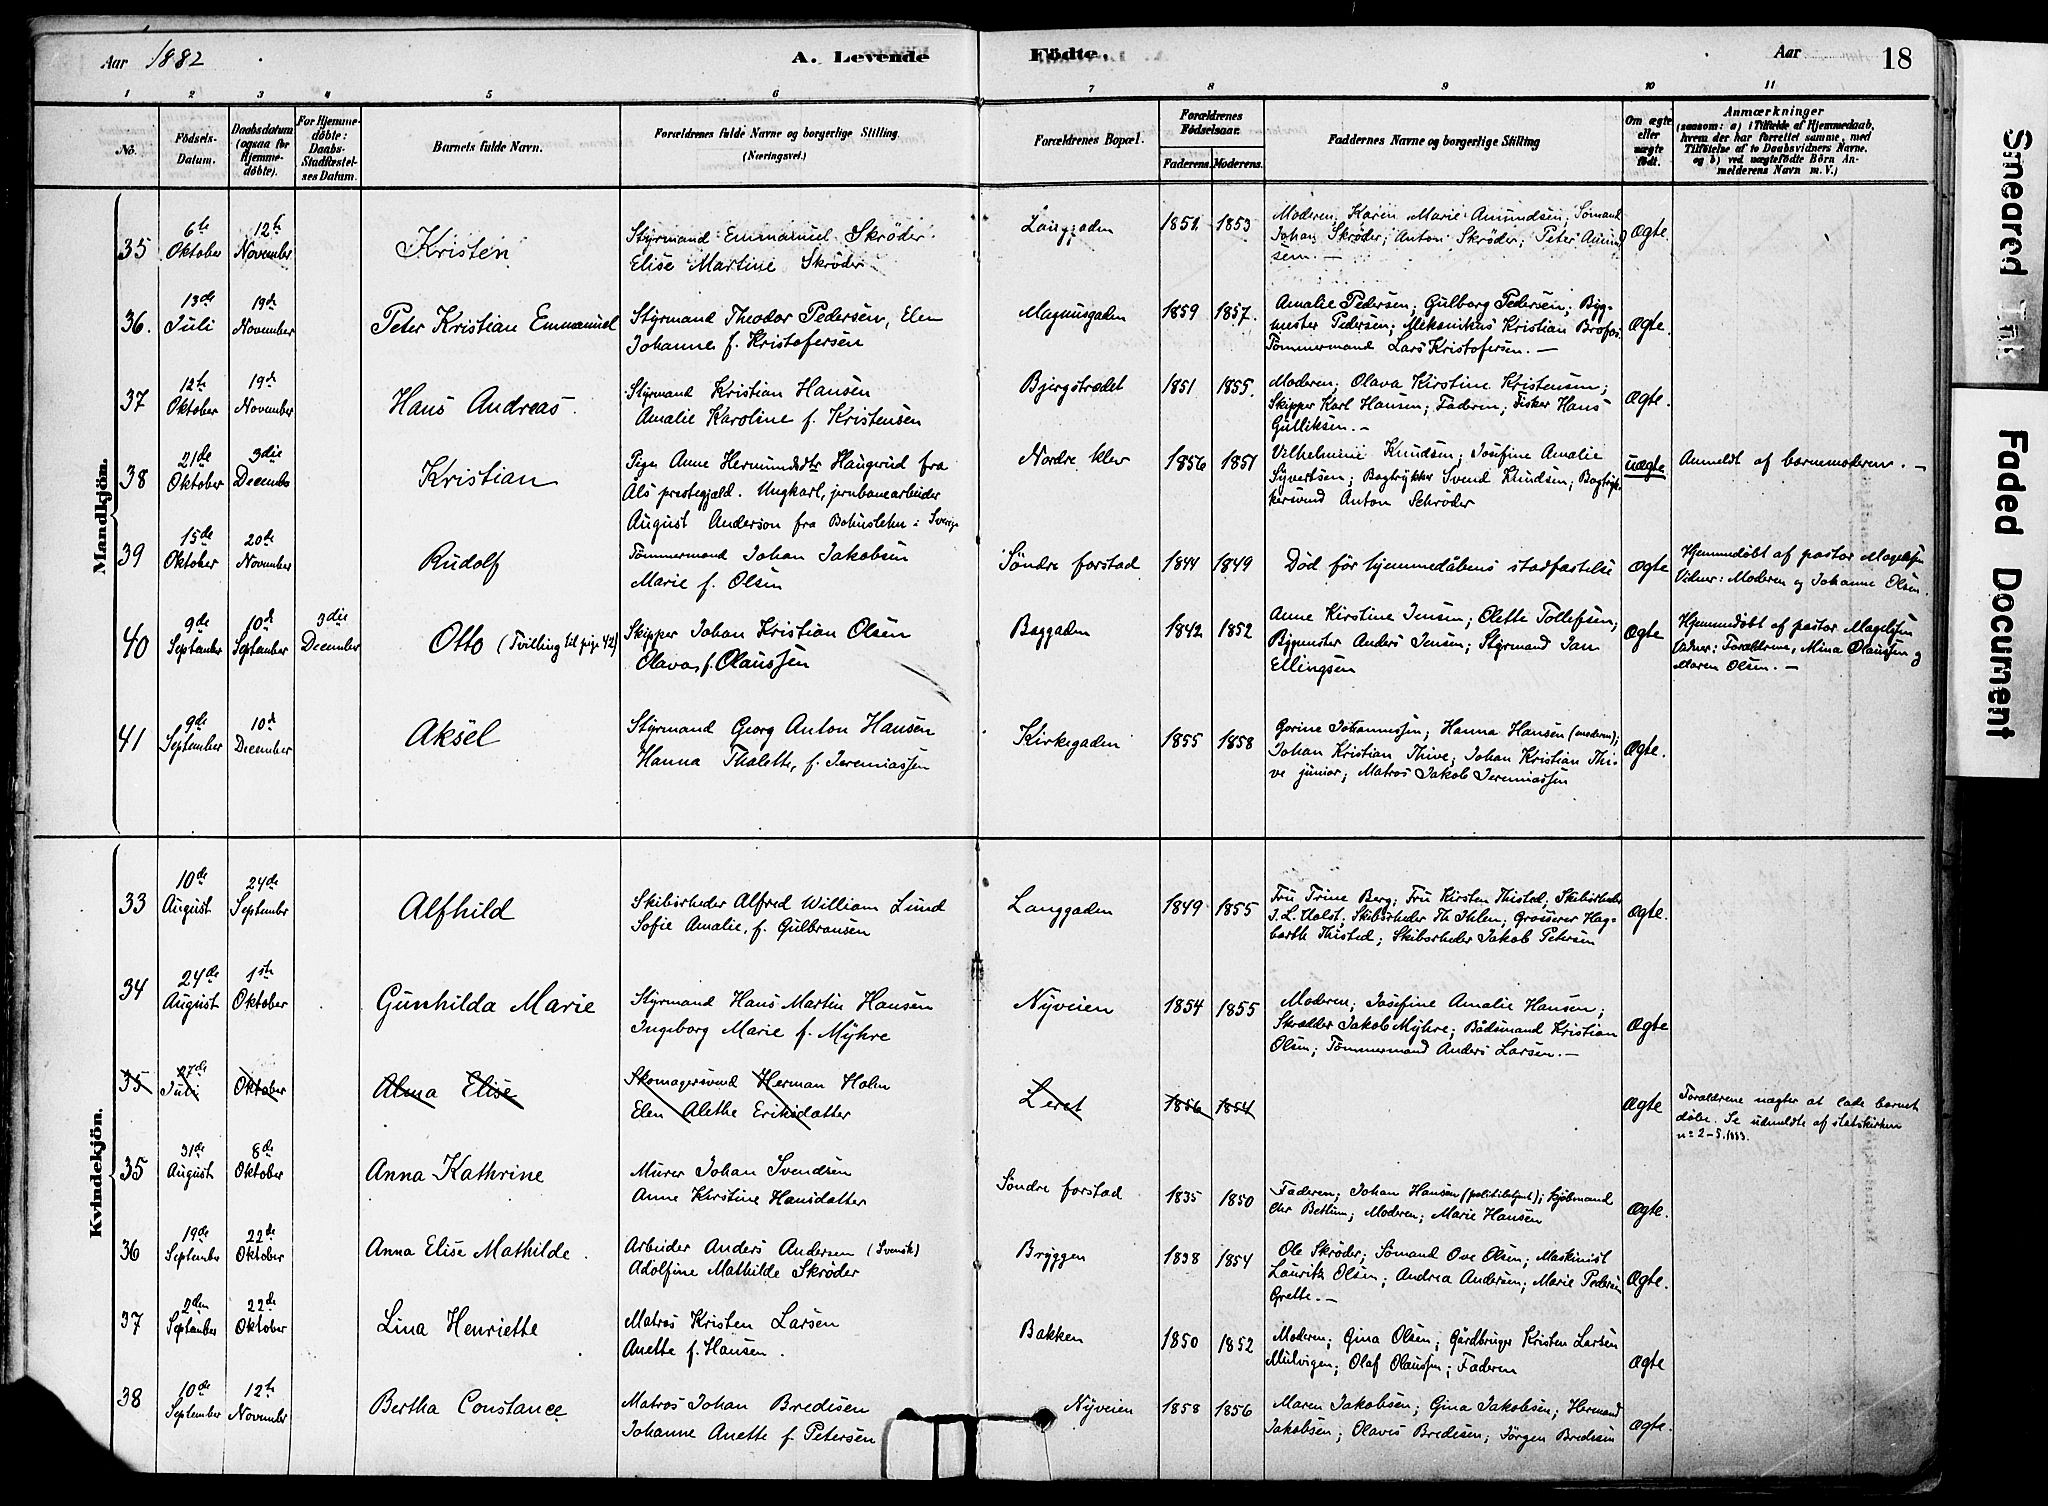 Aar 1882 A. Levende Fødte. Aar 18
1 2 3 4 5 6 7 8 9 10 11
No. Fødsels-Datum. Daabsdatum (ogsaa for Hjemmedøbte). For Hjemmedøbte: Daabs-Stadfæstelses Datum. Barnets fulde Navn. Forældrenes fulde Navne og borgerlige Stilling. (Næringsvei.) Forældrenes Bopæl. Forældrenes Fødselsaar. Faderens. Moderens. Faddernes Navne og borgerlige Stilling Om ægte eller uægte født. Anmærkninger
(saasom: a) i Tilfælde af Hjemmedaab, hvem der har forrettet samme, med Tilføielse af to Daabsvidners Navne, og b) ved uægtefødte Børn Anmelderens Navn m. V.)
Mandkjön.
35 6te Oktober 12te November Kristen
Styrmand Emmanuel Skrøder
Elise Martine Skrøder
Langgaden 1851. 1853
Moderen; Karen Marie Amundsen; Sømand
Johan Skrøder; Anton Skrøder; Peter Amund
sen. — Ægte.
36. 13de Juli 19de November Peter Kristian Emmanuel
Styrmand Theodor Pedersen, Elen
Johanne f. Kristofersen
Magnusgaden 1859 1857.
Amalie Pedersen; Gulborg Pedersen; Byg-
mester Pedersen; Mekanikus Kristian Brofos
Tømmermand Lars Kristofersen. — Ægte.
37 12te Oktober 19de November Hans Andreas.
Styrmand Kristian Hansen
Amalie Karoline f. Kristensen
Bjergstrædet 1851 1855.
Moderen; Olava Kirstine Kristensen;
Skipper Karl Hansen; Faderen; Fisker Hans
Gulliksen. — Ægte.
38 21de Oktober 3die Decembr Kristian
Pige Anne Hermundsdtr Haugerud fra
Åls prestegjæld. Ungkarl, jernbanearbeider
August Anderson fra Bohuslehn i Sverige
Nordre klev 1856 1851
Vilhelmine Knudsen; Josefine Amalie
Syvertsen; Bogtrykker Svend Knudsen; Bogtryk-
kersvend Anton Schrøder uægte Anmeldt af barnemoderen. —
39 15de Oktober 20de November Rudolf
Tømmermand Johan Jakobsen
Marie f. Olsen
Søndre forstad 1844 1849 Død før hjemmedåbens stadfæstelse Ægte
Hjemmedøbt af pastor Magelssen
Vidner: Moderen og Johanne Olsen.
40 9de September 10de September 3die December Otto (Tvilling til pige 42)
Skipper Johan Kristian Olsen
Olava, f. Olaussen
Baggaden 1842 1852
Anne Kirstine Jensen; Olette Tollefsen;
Bygmester Anders Jensen; Styrmand Jan
Ellingsen Ægte
Hjemmedøbt af pastor Magelssen
Vidner: Forældrene, Mina Olaussen og
Maren Olsen. —
41 9de September 10de December Aksel
Styrmand Georg Anton Hansen
Hanna Thalette, f. Jeremiassen
Kirkegaden 1855 1858
Gorine Johannessen; Hanna Hansen (moderen);
Johan Kristian Thive; Johan Kristian Thi-
ve junior; Matros Jakob Jeremiassen Ægte.
Kvindekjön.
33 10de August 24de Septembr Alfhild
Skibsrheder Alfred William Lund
Sofie Amalie, f. Gulbransen
Langgaden 1849 1855
Fru Trine Berg; Fru Kirsten Thisted, Skibsrheder
J. L. Holst; Skibsrheder Th Ihlen; Grosserer Hag-
barth Thisted; Skibsrheder Jakob Petersen Ægte.
34 24de August 1ste Oktober Gunhilda Marie
Styrmand Hans Martin Hansen
Ingeborg Marie f. Myhre
Nyveien 1854 1855
Moderen; Josefine Amalie Hansen;
Skrædder Jakob Myhre; Bådsmand Kristian
Olsen; Tømmermand Anders Larsen. — Ægte
35 27de Juli Oktober Alma Elise
Skomagersvend Herman Holm
Elen Alethe Eriksdatter
Leret 1856 1854 Ægte
Forældrene nægter at lade barnet
døbe. Se udmeldte af statskirken
no 2 – 5. 1883.
35 31de August 8de Oktober Anna Kathrine
Murer Johan Svendsen
Anne Kirstine Hansdatter
Søndre forstad 1835 1850
Faderen; Johan Hansen (politibetjent); kjøbmand
Chr Bettum; Moderen; Marie Hansen Ægte.
36 19de Septembr 22de Oktober Anna Elise Mathilde.
Arbeider Anders Andersen (Svensk)
Adolfine Mathilde Skrøder
Bryggen 1838 1854
Ole Skrøder; Sømand Ove Olsen; Maskinist
Lauritz Olsen; Andrea Andersen; Marie Pedersen
Grette. — Ægte.
37 2den September 22de Oktober Lina Henriette
Matros Kristen Larsen
Anette f. Hansen.
Bakken 1850 1852
Moderen; Gina Olsen; Gårdbruger Kristen Larsen
Mulvigen; Olaf Olaussen; Faderen Ægte
38 10de September 12te November Bertha Constance
Matros Johan Bredesen
Johanne Anette f. Petersen
Nyveien 1858 1856
Maren Jakobsen; Gina Jakobsen; Herman
Jakobsen; Olavis Bredesen; Jørgen Bredesen Ægte.
Smeared Ink
Faded Document